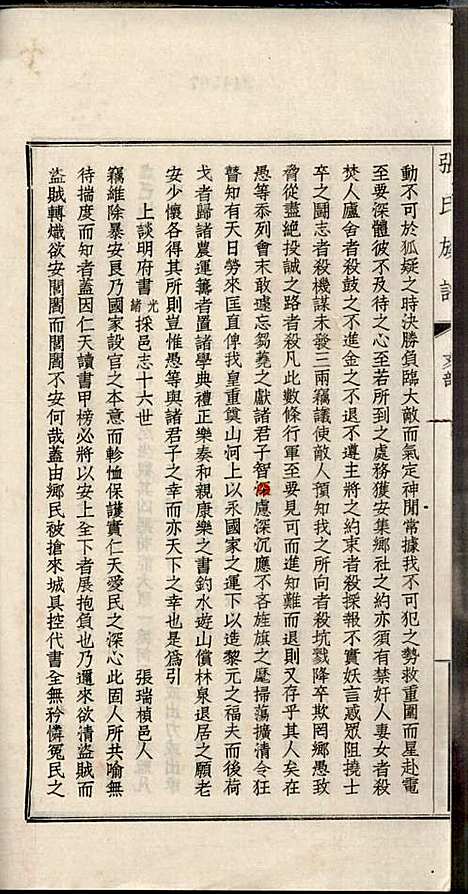 張氏族譜
文部
動不可於狐疑之時決勝負臨大敵而氣定神閒常據我不可犯之勢救重圍而星赴電
至要深體彼不及待之心至若所到之處務獲安集鄉社之約亦須有禁奸人妻女者殺
焚人廬舍者殺鼓之不進金之不退不遵主將之約束者殺採報不實妖言惑眾阻撓士
卒之鬪志者殺機謀未發三兩竊議使敵人預知我之所向者殺坑戮降卒欺罔鄉愚致
脅從盡絕投誠之路者殺凡此數條行軍至要見可而進知難而退又存乎其人矣在
愚等忝列會末敢遽忘芻蕘之獻諸君子智慮深沉應不吝旌旗之麾掃蕩擴清令狂
瞽知有天日勞來匡直俾我皇重奠山河上以永國家之運下以造黎元之福夫而後荷
戈者歸諸農運籌者置諸學典禮正樂奏和親康樂之書釣水遊山償林泉退居之願老
安少懷各得其所則豈惟愚等與諸君子之幸而亦天下之幸也是為引
上談明府書 光緒採邑志十六世 張瑞楨邑人
竊維除暴安良乃國家設官之本意而軫恤保護實仁天愛民之深心此固人所共喻無
待揣度而知者蓋因仁天讀書甲榜必將以安上全下者展抱負也乃邇來欲清盜賊而
盜賊轉熾欲安閭閻而閭閻不安何哉蓋由鄉民被搶來城具控代書全無矜憐冤民之